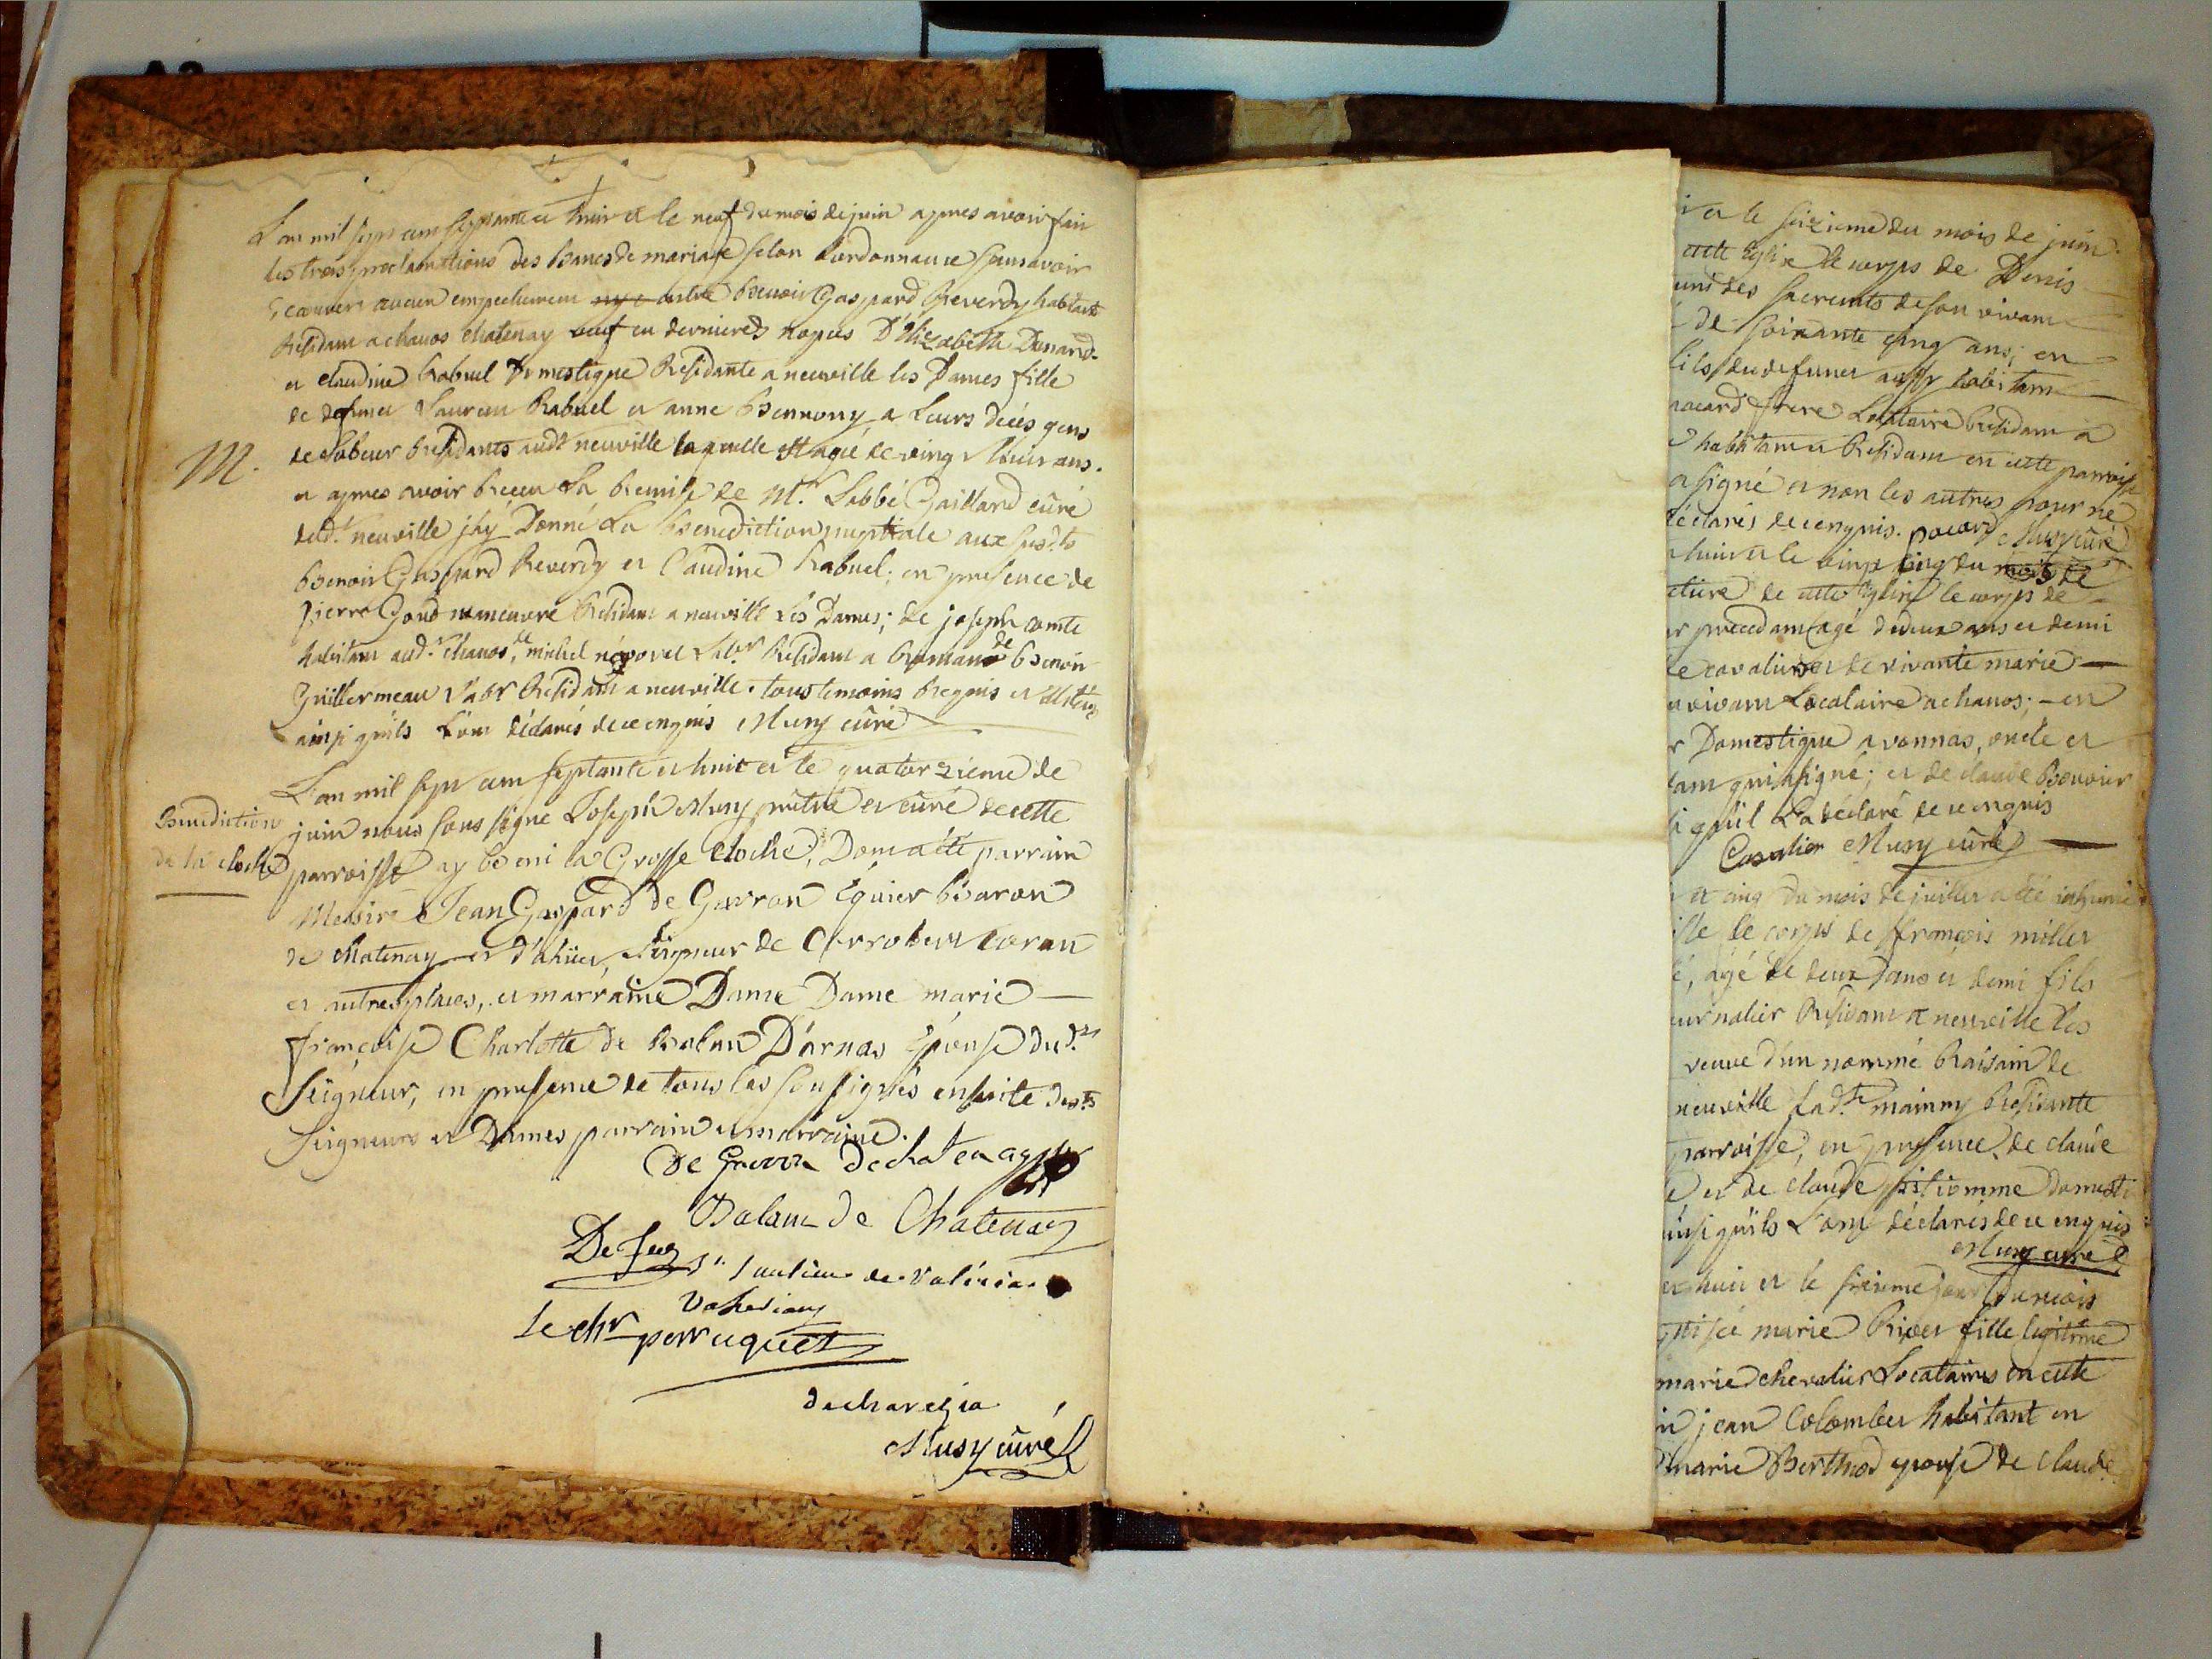 L'an mil sept cent septante et huit et le neuf du mois de juin apres avoir fait
les trois proclamations des bancs de mariage selon L'ordonnance sans avoir
decouvert aucun empechement Benoit Gaspard Reverdy habitant
Residant a chanos chatenay veuf en dernieres nopces D'Elizabeth Donand
et claudine Rabuel Domestique Residante a neuville les Dames fille
de defunct Laurent Rabuel et anne Bennony a Leurs décès gens
de Labeur Residants audt neuville laquelle est agée de vingt huit ans.
M.
et apres avoir Receu La Remise de Mr. Labbé Gaillard curé
dudt. neuville jäy Donné La Benediction nuptiale aux susdts
Benoit Gaspard Reverdy et Claudine Rabuel; en presence de
pierre Goud maneuvre Residant a neuville Les Dames; de joseph comte
habitant audt. chanos, de michel Labr. Residant a Romans de Benoit
Guillermeau Labr Residant a neuville. tous temoins Requis et
ainsi quils L'ont déclarés de ce enquis Musy curé
L'an mil sept cent septante et huit et le quatorzieme de
juin nous sous signé Joseph Musy prêtre et curé de cette
Benediction
de la cloche
parroisse ay beni la Grosse cloche, Dont a été parrain
Messire Jean Gaspard de Garron Ecuier Baron
de chatenay et d'ahiier, Seigneur de
et autres places, et marraine Dame Dame marie
françoise Charlotte de Balan D'arnas Epouse dudt.
Seigneur, en presence de tous les sousignés ensuite desdts
Seigneurs et Dames parrain et marraine.
De Garron de chatenay
Balan de Chatenay
de Valérian
Valerian
Le chr perruquet
Musy curé
et le seizieme du mois de juin
cette Eglise le corps de Denis
muni des sacrements de son vivant
de soixante cinq ans; en
fils du defunct aussy habitant
pocard frere Locataire Residant a
habitant et Residant en cette parroisse
a signé et non les autres pour ne
déclarés de ce enquis. pocard Musy curé
huit et le vingt cinq du mois de
cimetiere de cette Eglise le corps de
precedant agé de deux ans et demi
cavalier et de vivante marie
vivant Locataire a chanos; en
Domestique a vonnas, oncle et
qui a signé; et de claude Bouvier
quil L'a déclaré de ce enquis
Cavalier Musy curé
et cinq du mois de juillet a été inhumé
le corps de françois millet
agé de deux ans et demi fils
journalier Residant a neuville les
veuve d'un nommé Raisain de
neuville ladte mainny Residante
parroisse, en presence de claude
et de claude pitiomme domesti
ainsi quils L'ont déclarés de ce enquis
Musy curé
huit et le jour du mois
marie River fille legitime
marie chevalier Locataires en cette
jean Colomber habitant en
marie Berthod epouse de claude